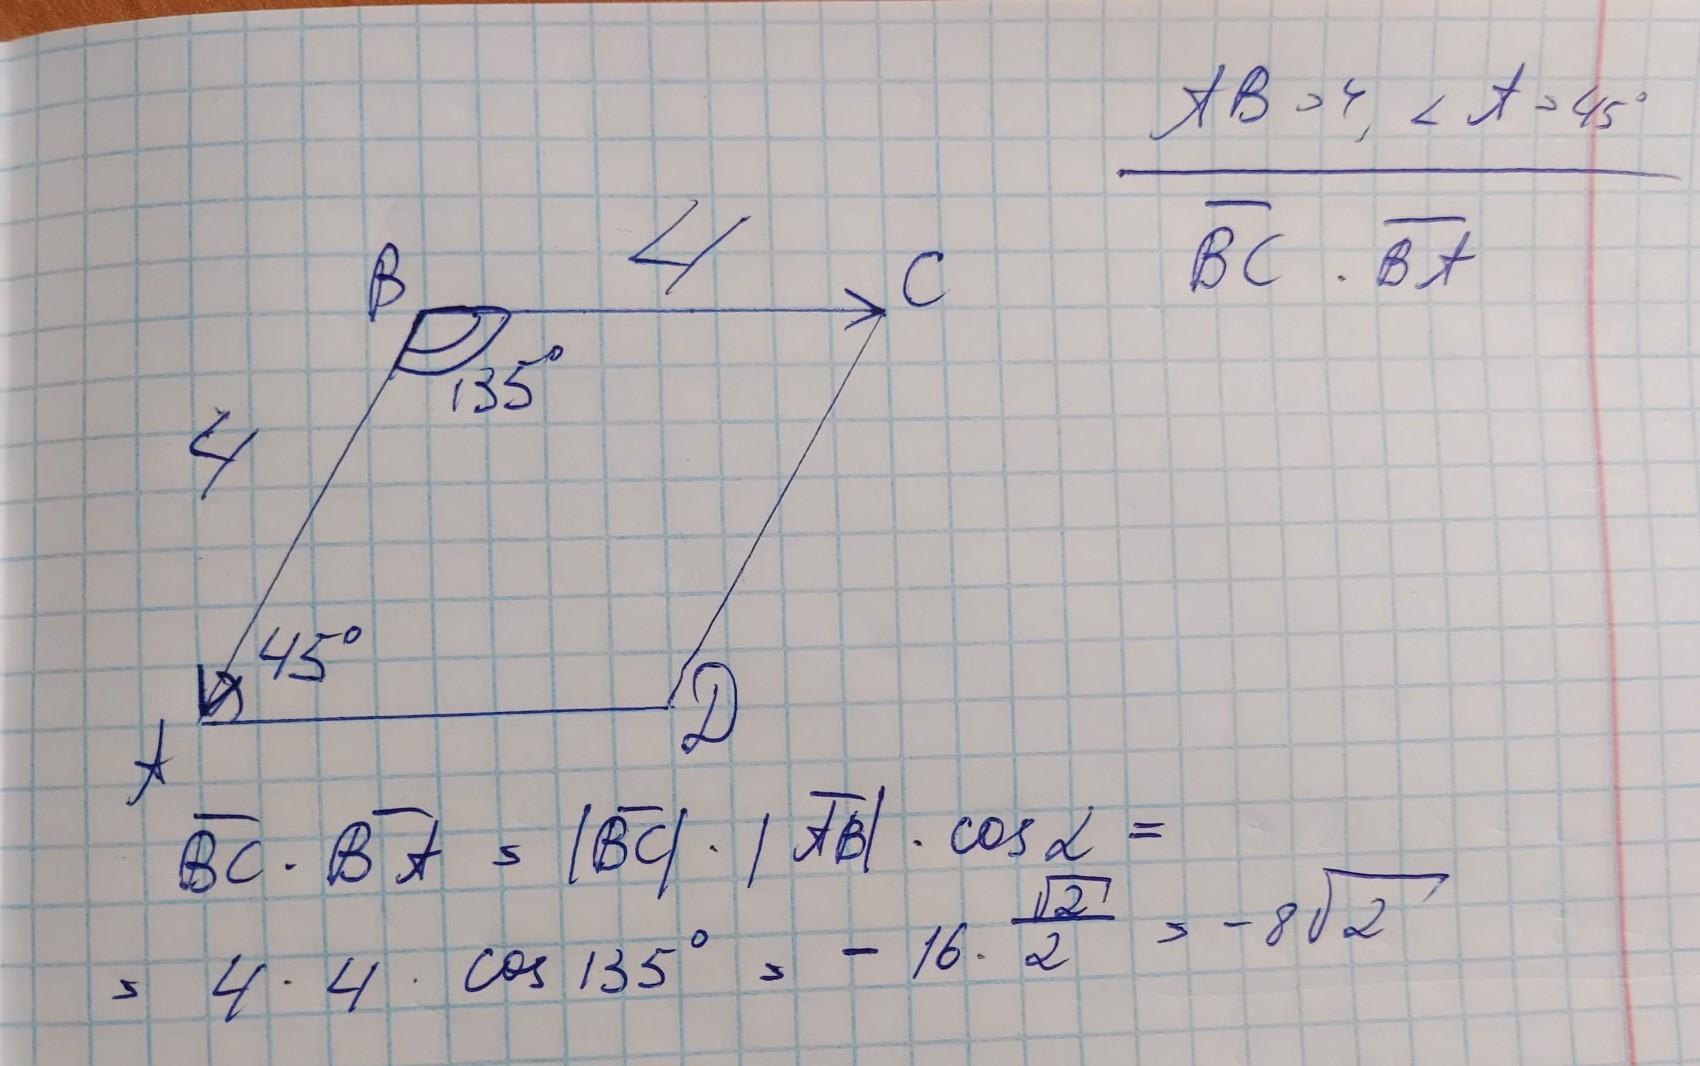 AB = 4, ∠ A = 45°
BC · BA
4
B
C
135°
4
45°
A
D
BC · BA = |BC| · |AB| · cos α =
= 4 · 4 · cos 135° = - 16 · √2/2 = -8√2